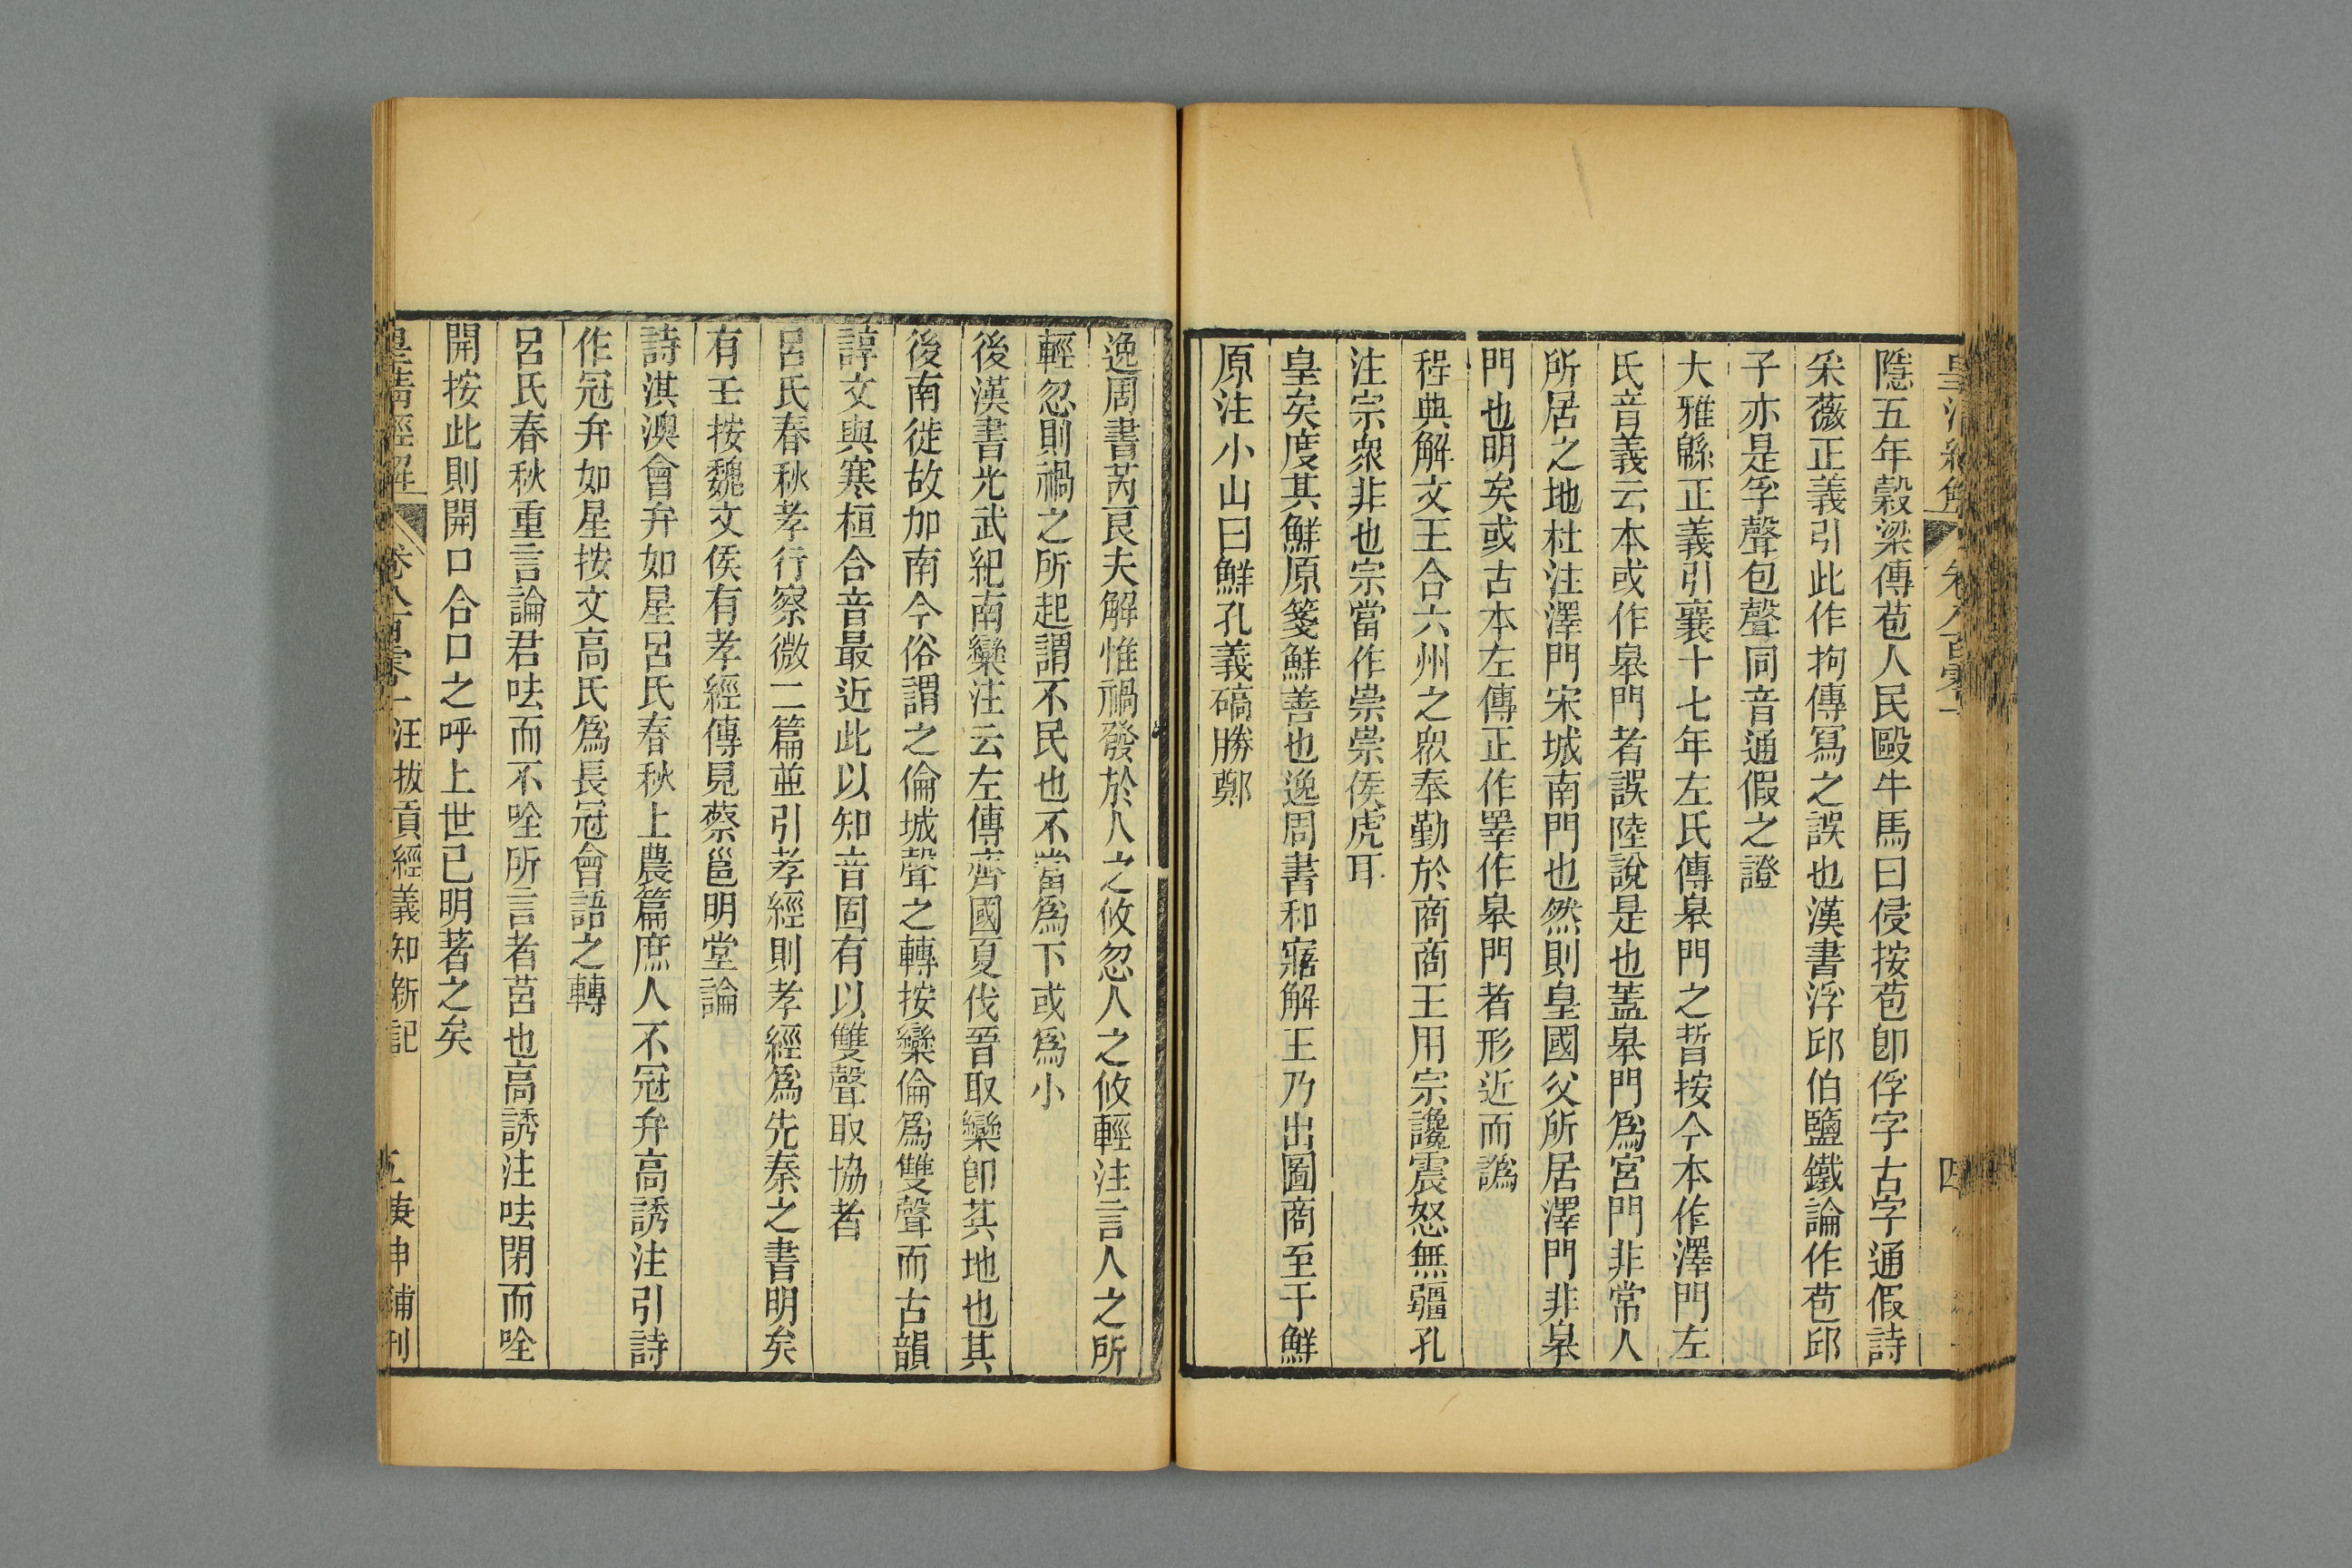 皇清經解 卷八百零一 四
隱五年榖梁傳苞人民毆牛馬曰侵按苞卽俘字古字通假詩
采薇正義引此作拘傳寫之誤也漢書浮邱伯鹽鐵論作苞邱
子亦是孚聲包聲同音通假之證
大雅緜正義引襄十七年左氏傳皋門之晳按今本作澤門左
氏音義云本或作皋門者誤陸說是也葢皋門爲宮門非常人
所居之地杜注澤門宋城南門也然則皇國父所居澤門非皋
門也明矣或古本左傳正作睪作皋門者形近而譌
程典解文王合六州之衆奉勤於商商王用宗讒震怒無疆孔
注宗衆非也宗當作崇崇侯虎耳
皇矣度其鮮原箋鮮善也逸周書和寤解王乃出圖商至于鮮
原注小山曰鮮孔義碻勝鄭
逸周書芮良夫解惟禍發於人之攸忽人之攸輕注言人之所
輕忽則禍之所起謂不民也不當爲下或爲小
後漢書光武紀南欒注云左傳齊國夏伐晉取欒卽其地也其
後南徙故加南今俗謂之倫城聲之轉按欒倫爲雙聲而古韻
諄文與寒桓合音最近此以知音固有以雙聲取協者
呂氏春秋孝行察微二篇並引孝經則孝經爲先秦之書明矣
有壬按魏文侯有孝經傳見蔡邕明堂論
詩淇澳會弁如星呂氏春秋上農篇庶人不冠弁高誘注引詩
作冠弁如星按文高氏爲長冠會語之轉
呂氏春秋重言論君呿而不唫所言者莒也高誘注呿閉而唫
開按此則開口合口之呼上世已明著之矣
皇淸經解 卷八百零一 汪拔貢經義知新記 五 庚申補刊